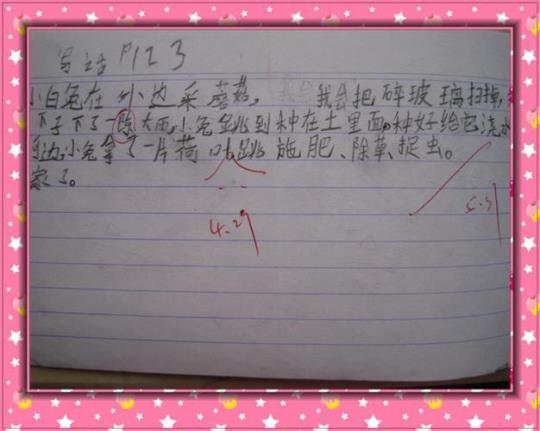 写话 P123
小白兔在外边采蘑菇。 我会把碎玻璃扫掉,
下子下了一陈大雨,小兔跳到 种在土里面,种好给它浇水
边,小兔拿了一片荷叶跳 施肥、除草、捉虫。
家了。
4.29
5.3